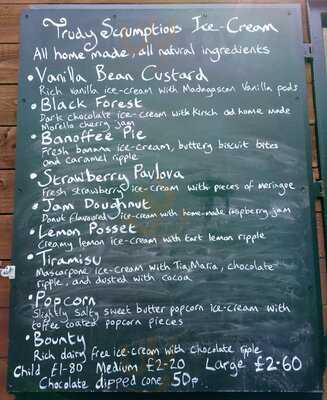 Trudy Scrumptious Ice-Cream
All home made, all natural ingredients
• Vanilla Bean Custard
Rich vanilla ice-cream with Madagascan Vanilla pods
• Black Forest
Dark chocolate ice-cream with Kirsch and home made
Morello cherry jam
• Banoffee Pie
Fresh banana ice-cream, buttery biscuit bites
and caramel ripple
• Strawberry Pavlova
Fresh strawberry ice-cream with pieces of meringue
• Jam Doughnut
Donut flavoured ice-cream with home-made raspberry jam
• Lemon Posset
Creamy lemon ice-cream with tart lemon ripple
• Tiramisu
Mascarpone ice-cream with Tia Maria, chocolate
ripple, and dusted with cocoa
• Popcorn
Slightly salty sweet butter popcorn ice-cream with
toffee coated popcorn pieces
• Bounty
Rich dairy free ice-cream with chocolate ripple
Child £1-80 Medium £2-20 Large £2-60
Chocolate dipped cone 50p